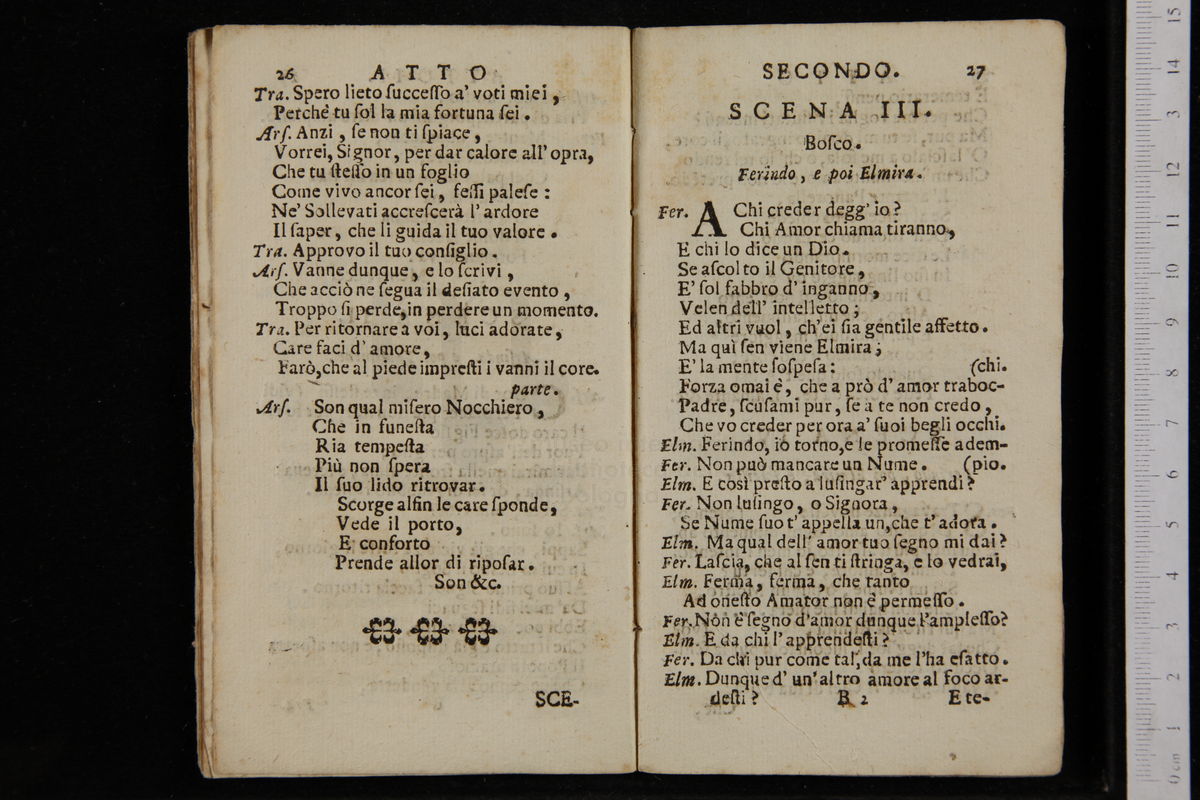 26 ATTO
Tra. Spero lieto ſucceſſo a' voti miei,
Perchè tu ſol la mia fortuna ſei.
Arſ. Anzi, ſe non ti ſpiace,
Vorrei, Signor, per dar calore all' opra,
Che tu ſteſſo in un foglio
Come vivo ancor ſei, feſſi paleſe:
Ne' Sollevati accreſcerà l' ardore
Il ſaper, che li guida il tuo valore.
Tra. Approvo il tuo conſiglio.
Arſ. Vanne dunque, e lo ſcrivi,
Che acciò ne ſegua il deſiato evento,
Troppo ſi perde, in perdere un momento.
Tra. Per ritornare a voi, luci adorate,
Care faci d' amore,
Farò, che al piede impreſti i vanni il core.
parte.
Arſ. Son qual miſero Nocchiero,
Che in funeſta
Ria tempeſta
Più non ſpera
Il ſuo lido ritrovar.
Scorge alfin le care ſponde,
Vede il porto,
E conforto
Prende allor di ripoſar.
Son &c.
SCE-
SECONDO. 27
SCENA III.
Boſco.
Ferindo, e poi Elmira.
Fer. A Chi creder degg' io?
Chi Amor chiama tiranno,
E chi lo dice un Dio.
Se aſcolto il Genitore,
E' ſol fabbro d' inganno,
Velen dell' intelletto;
Ed altri vuol, ch'ei ſia gentile affetto.
Ma quì ſen viene Elmira;
E' la mente ſoſpeſa: (chi.
Forza omai è, che a prò d' amor traboc-
Padre, ſcuſami pur, ſe a te non credo,
Che vo creder per ora a' ſuoi begli occhi.
Elm. Ferindo, io torno, e le promeſſe adem-
Fer. Non può mancare un Nume. (pio.
Elm. E così preſto a luſingar' apprendi?
Fer. Non luſingo, o Signora,
Se Nume ſuo t' appella un, che t' adora.
Elm. Ma qual dell' amor tuo ſegno mi dai?
Fer. Laſcia, che al ſen ti ſtringa, e lo vedrai,
Elm. Ferma, ferma, che tanto
Ad oneſto Amator non è permeſſo.
Fer. Non è ſegno d'amor dunque l'ampleſſo?
Elm. E da chi l' apprendeſti?
Fer. Da chi pur come tal, da me l'ha eſatto.
Elm. Dunque d' un' altro amore al foco ar-
deſti? B 2 E te-